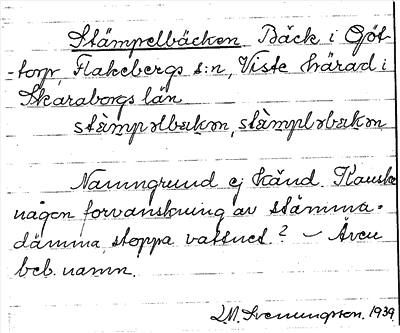 Stämpelbäcken Bäck i Göt-
-torp, Flakebergs s:n, Viste härad i
Skaraborgs län
stàmpəlbækən, stàmplabækən
Namngrund ej känd. Kanske
någon förvanskning av stämma =
dämma, stoppa vattnet? – Även
beb. namn.
L.M. Svenungsson. 1939